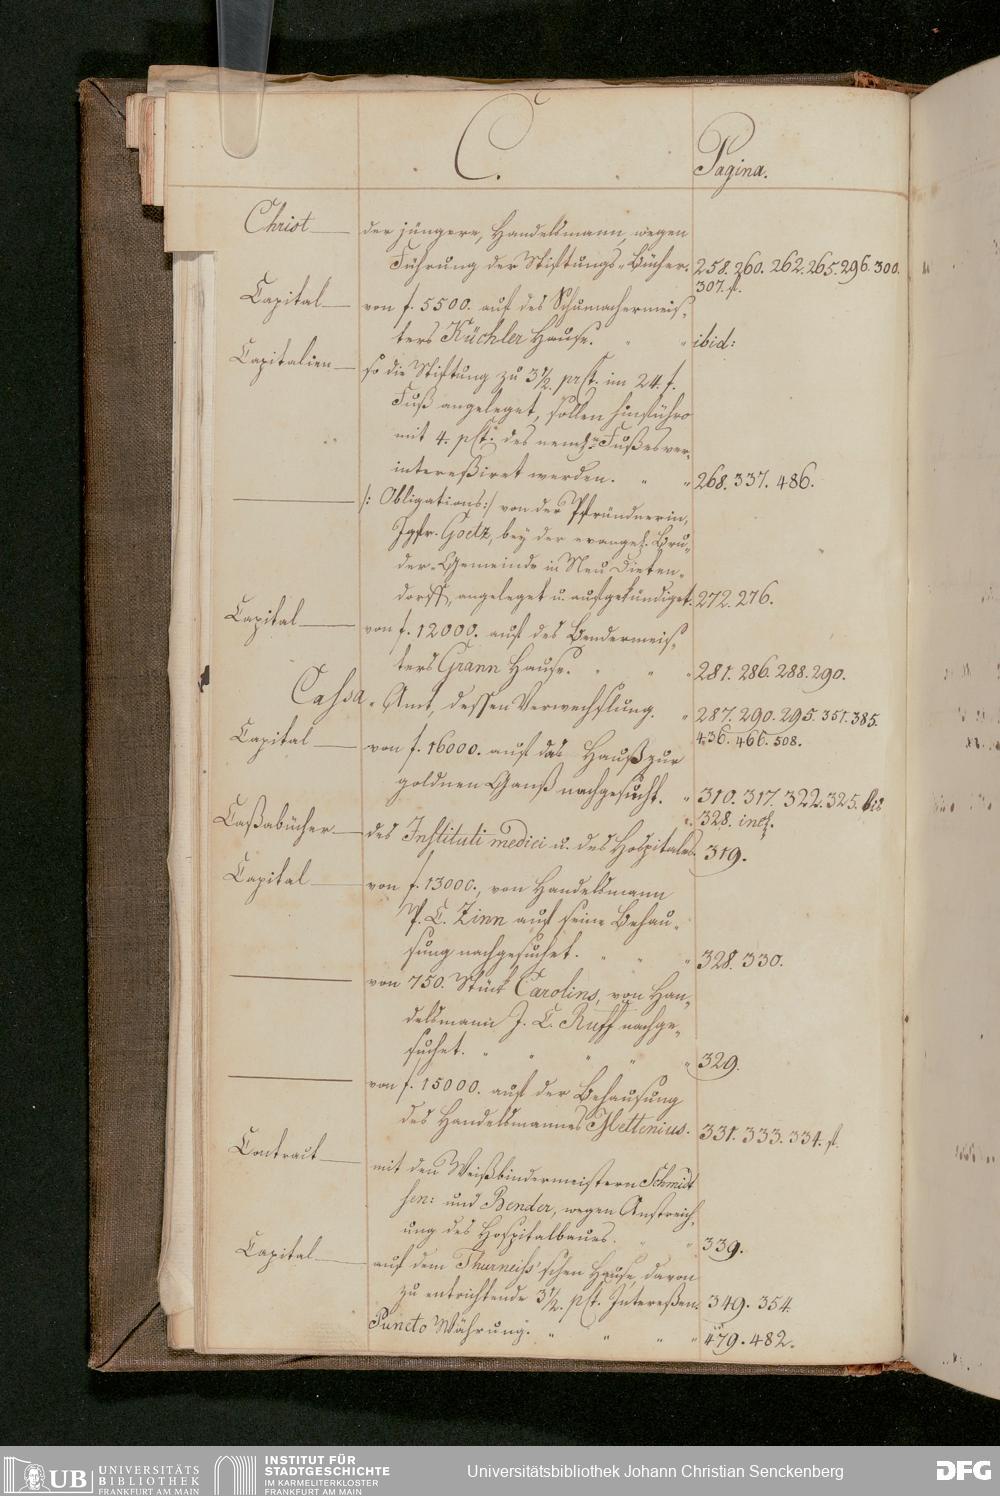 C.
Pagina.
Christ — der jüngere, Handelsmann, wegen
Führung der Stiftungs-Bücher. 258. 260. 262. 265. 296. 300.
307. f.
Capital — von f. 5500. auf des Schumachermeis-
ters Küchler Hause. " " ibid:
Capitalien — so die Stiftung zu 3½. prCt. im 24. f.
Fuß angeleget, sollen hinführo
mit 4. pCt. des nemł. Fußes ver-
intereßiret werden. " " 268. 337. 486.
— /: Obligations :/ von der Pfründnerin,
Jgfr. Goetz, bey der evangel. Brü-
der-Gemeinde in Neu Dieten-
dorff, angeleget u. aufgekündiget. 272. 276.
Capital — von f. 12000. auf des Bendermeis-
ters Grann Hause. " " " 281. 286. 288. 290.
Cassa-Amt, dessen Verwechslung. " 287. 290. 295. 351. 385.
436. 466. 508.
Capital — von f. 16000. auf das Hauß zur
goldnen Ganß nachgesucht. " 310. 317. 322. 325. bis
328. incl.
Caßabücher — des Instituti medici u. des Hospitales. 319.
Capital — von f. 13000., von Handelsmann
P. C. Zinn auf seine Behau-
sung nachgesuchet. " " " 328. 330.
— von 750. Stück Carolins, von Han-
delsmann J. C. Ruff nachge-
suchet. " " " " " 329.
— von f. 15000. auf der Behausung
des Handelsmannes Mettenius. 331. 333. 334. f.
Contract — mit den Weißbindermeistern Schmidt
sen: und Bender, wegen Anstreich-
ung des Hospitalbaues. " " 339.
Capital — auf dem Thurneiss'schen Hause, davon
zu entrichtende 3½. pCt. Intereßen. 349. 354.
Puncto Währung. " " " " 479. 482.
UB UNIVERSITÄTS
BIBLIOTHEK
FRANKFURT AM MAIN
INSTITUT FÜR
STADTGESCHICHTE
IM KARMELITERKLOSTER
FRANKFURT AM MAIN
Universitätsbibliothek Johann Christian Senckenberg
DFG